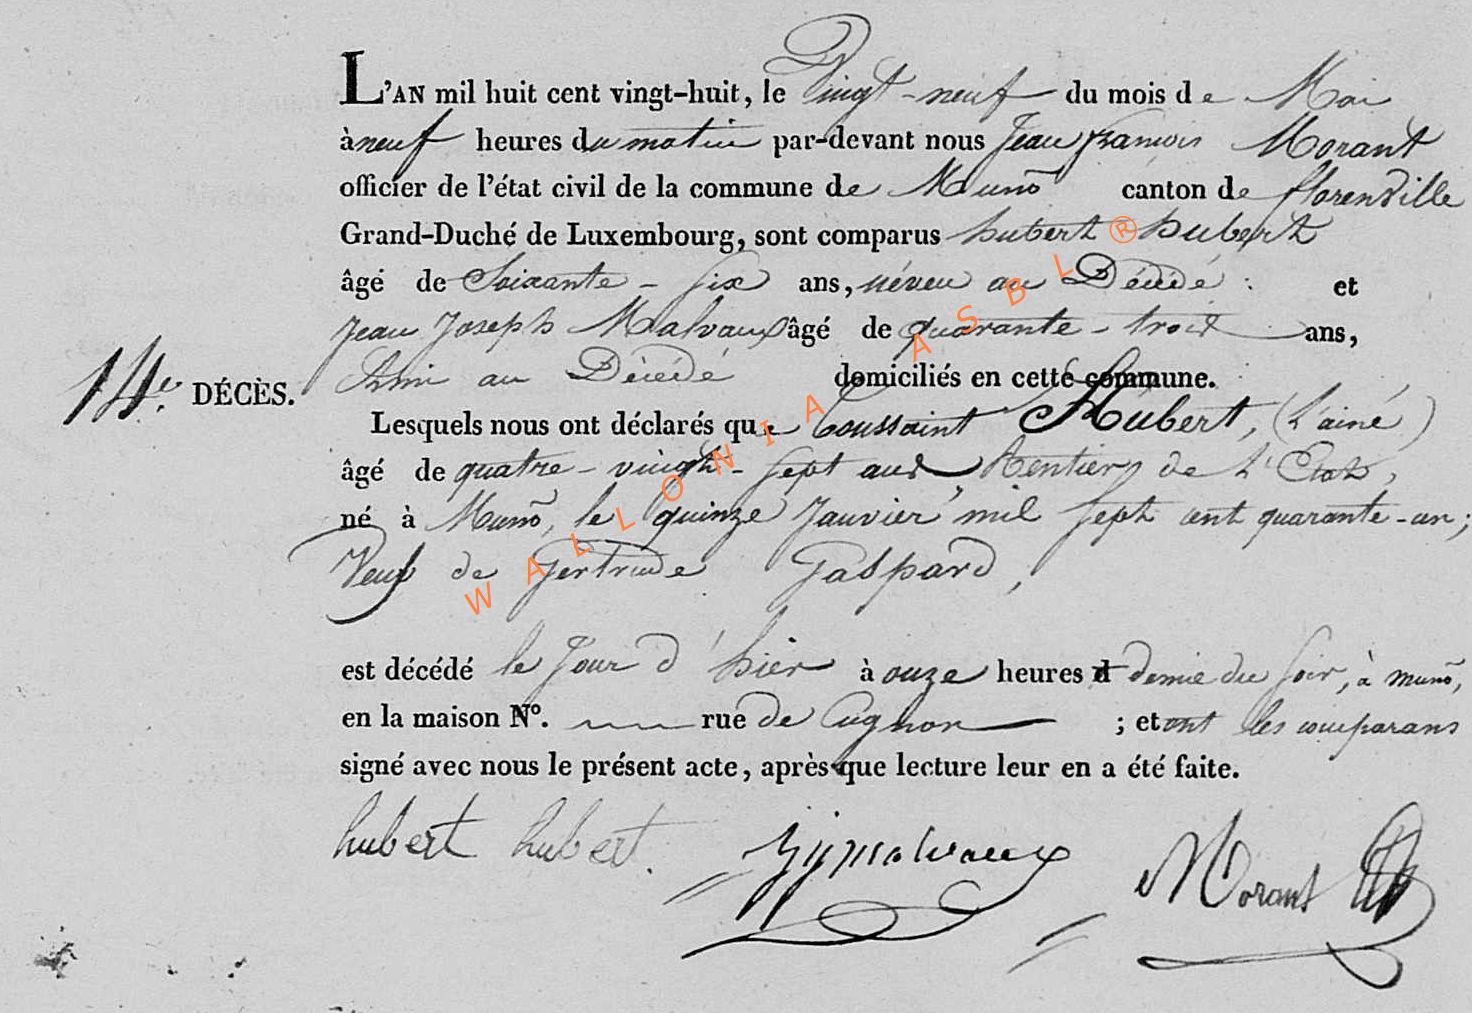 L'AN mil huit cent vingt-huit, le Vingt-neuf du mois de Mai
à neuf heures du matin par-devant nous Jean françois Morant
officier de l'état civil de la commune de Muno canton de florenville
Grand-Duché de Luxembourg, sont comparus hubert hubert
âgé de Soixante-six ans, néveu au Décédé : et
Jean Joseph Malvaux âgé de quarante-trois ans,
Ami au Décédé domiciliés en cette commune.
14e. DÉCÈS.
Lesquels nous ont déclarés que Toussaint Hubert, (L'ainé)
âgé de quatre-vingt-sept ans, Rentier de L'Etat,
né à Muno, le quinze Janvier mil sept cent quarante-un;
Veuf de Gertrude Gaspard,
est décédé le Jour d'hier à onze heures d demie du soir, à muno,
en la maison N°. rue de Cugnon ; et ont les comparans
signé avec nous le présent acte, après que lecture leur en a été faite.
hubert hubert. JJmalvaux Morant
WALLONIA ASBL ®